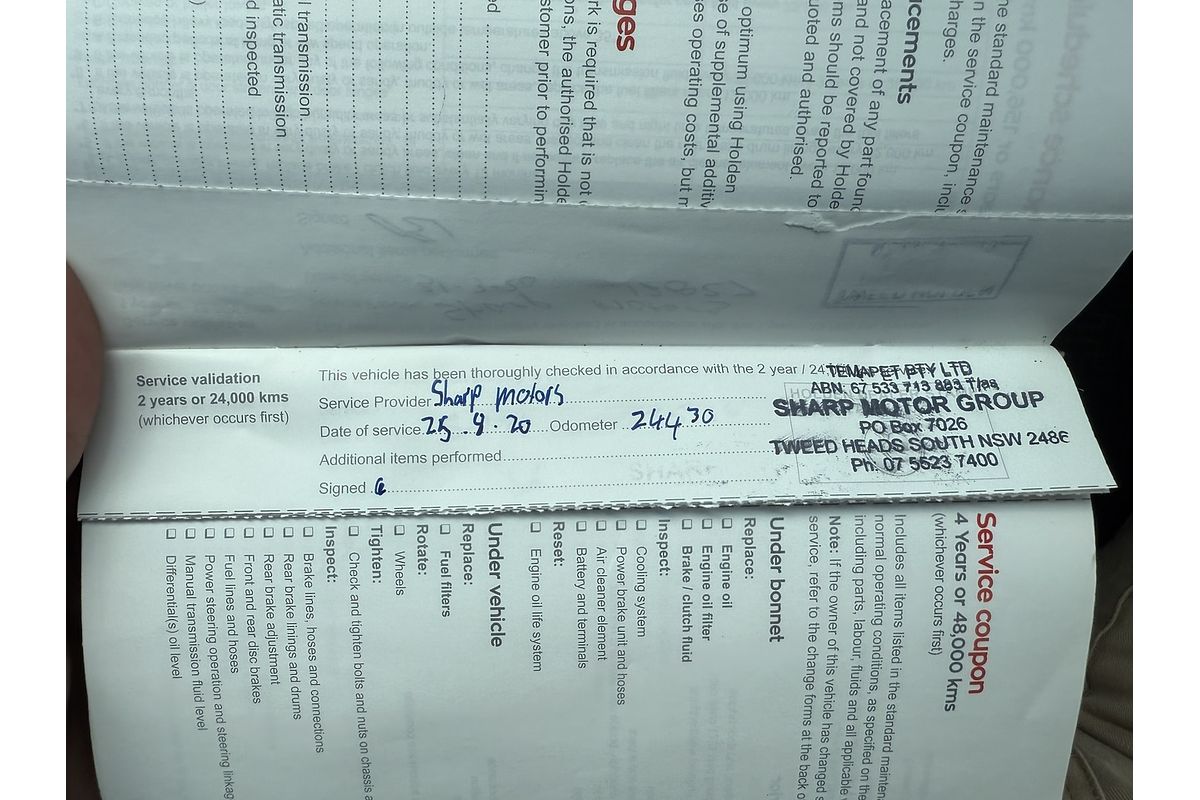 he standard maintenance s
n the service coupon, inclu
harges.
cements
acement of any part found
and not covered by Holde
ms should be reported to
uoted and authorised.
optimum using Holden
se of supplemental additiv
es operating costs, but n
ges
rk is required that is not
ons, the authorised Holde
stomer prior to performin
ed
l transmission
atic transmission
d inspected
Service validation
2 years or 24,000 kms
(whichever occurs first)
This vehicle has been thoroughly checked in accordance with the 2 year / 24
Service Provider Sharp motors
Date of service 25.9.20 Odometer 24430
Additional items performed
Signed
TEMAPET PTY LTD
ABN: 67 533 713 883 T/as
SHARP MOTOR GROUP
PO Box 7026
TWEED HEADS SOUTH NSW 2486
Ph: 07 5523 7400
Service coupon
4 Years or 48,000 kms
(whichever occurs first)
Includes all items listed in the standard mainten
normal operating conditions, as specified on the
including parts, labour, fluids and all applicable
Note: If the owner of this vehicle has changed s
service, refer to the change forms at the back o
Under bonnet
Replace:
❑ Engine oil
❑ Engine oil filter
❑ Brake / clutch fluid
Inspect:
❑ Cooling system
❑ Power brake unit and hoses
❑ Air cleaner element
❑ Battery and terminals
Reset:
❑ Engine oil life system
Under vehicle
Replace:
❑ Fuel filters
Rotate:
❑ Wheels
Tighten:
❑ Check and tighten bolts and nuts on chassis a
Inspect:
❑ Brake lines, hoses and connections
❑ Rear brake linings and drums
❑ Rear brake adjustment
❑ Front and rear disc brakes
❑ Fuel lines and hoses
❑ Power steering operation and steering linkag
❑ Manual transmission fluid level
❑ Differential(s) oil level